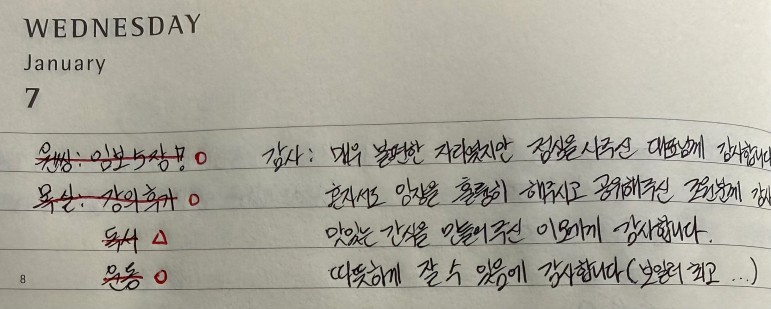 WEDNESDAY
January
7
원씽: 임보 5장! O 감사: 매우 불편한 자리였지만 점심을 사주신 대표님께 감사합니다
목실: 강의후기 O 혼자서도 임장을 훌륭히 해주시고 공유해주신 조원분께 감사
독서 △ 맛있는 간식을 만들어주신 이모에게 감사합니다.
운동 O 따뜻하게 잘 수 있음에 감사합니다(보일러 최고...)
8